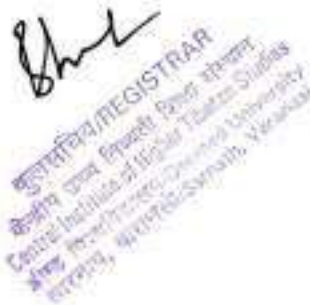 कुलसचिव/REGISTRAR
केन्द्रीय उच्च तिब्बती शिक्षा संस्थान
Central Institute of Higher Tibetan Studies
Deemed University
सारनाथ, वाराणसी/Sarnath, Varanasi